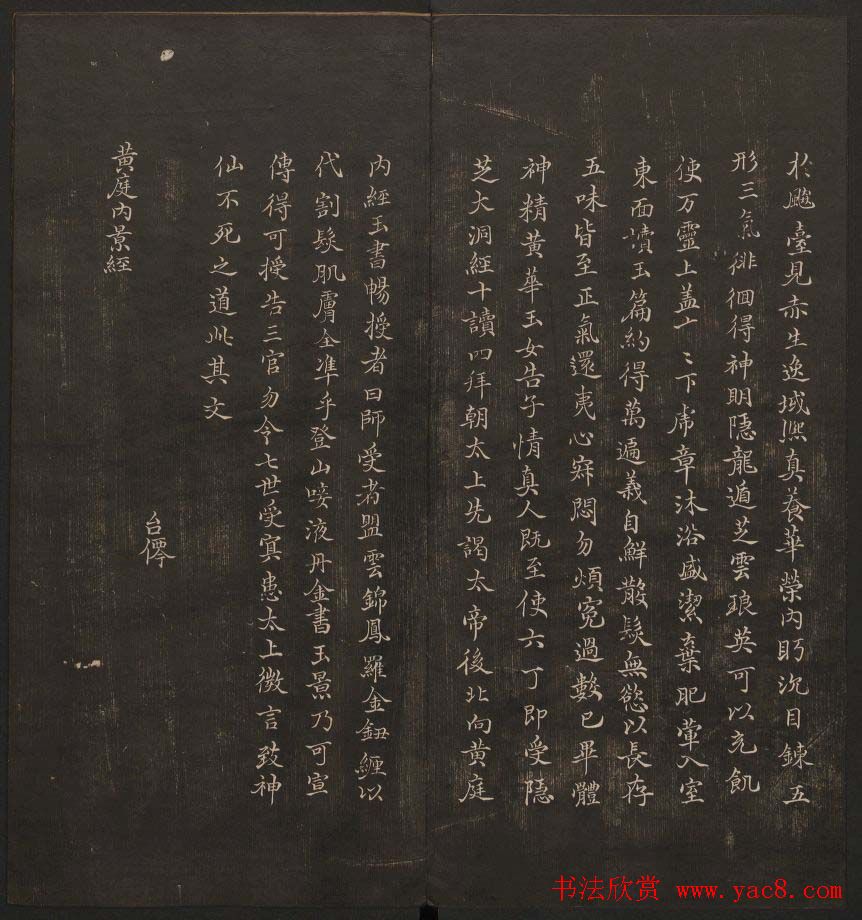 於飈臺見赤生逸域熙真養華榮內眄沉目鍊五
形三氣徘徊得神明隱龍遁芝雲琅英可以充飢
使万靈上盖亠〻下席章沐浴盛潔棄肥葷入室
東面讀玉篇約得萬遍義自鮮散髮無慾以長存
五味皆至正氣還夷心寂悶勿煩冤過數已畢體
神精黃華玉女告子情真人既至使六丁即受隱
芝大洞經十讀四拜朝太上先謁太帝後北向黃庭
內經玉書暢授者曰師受者盟雲錦鳳羅金鈕纏以
代割髮肌膚全準乎登山唼液丹金書玉景乃可宣
傳得可授告三官勿令七世受冥患太上微言致神
仙不死之道此其文
台僊
黃庭內景經
书法欣赏 www.yac8.com